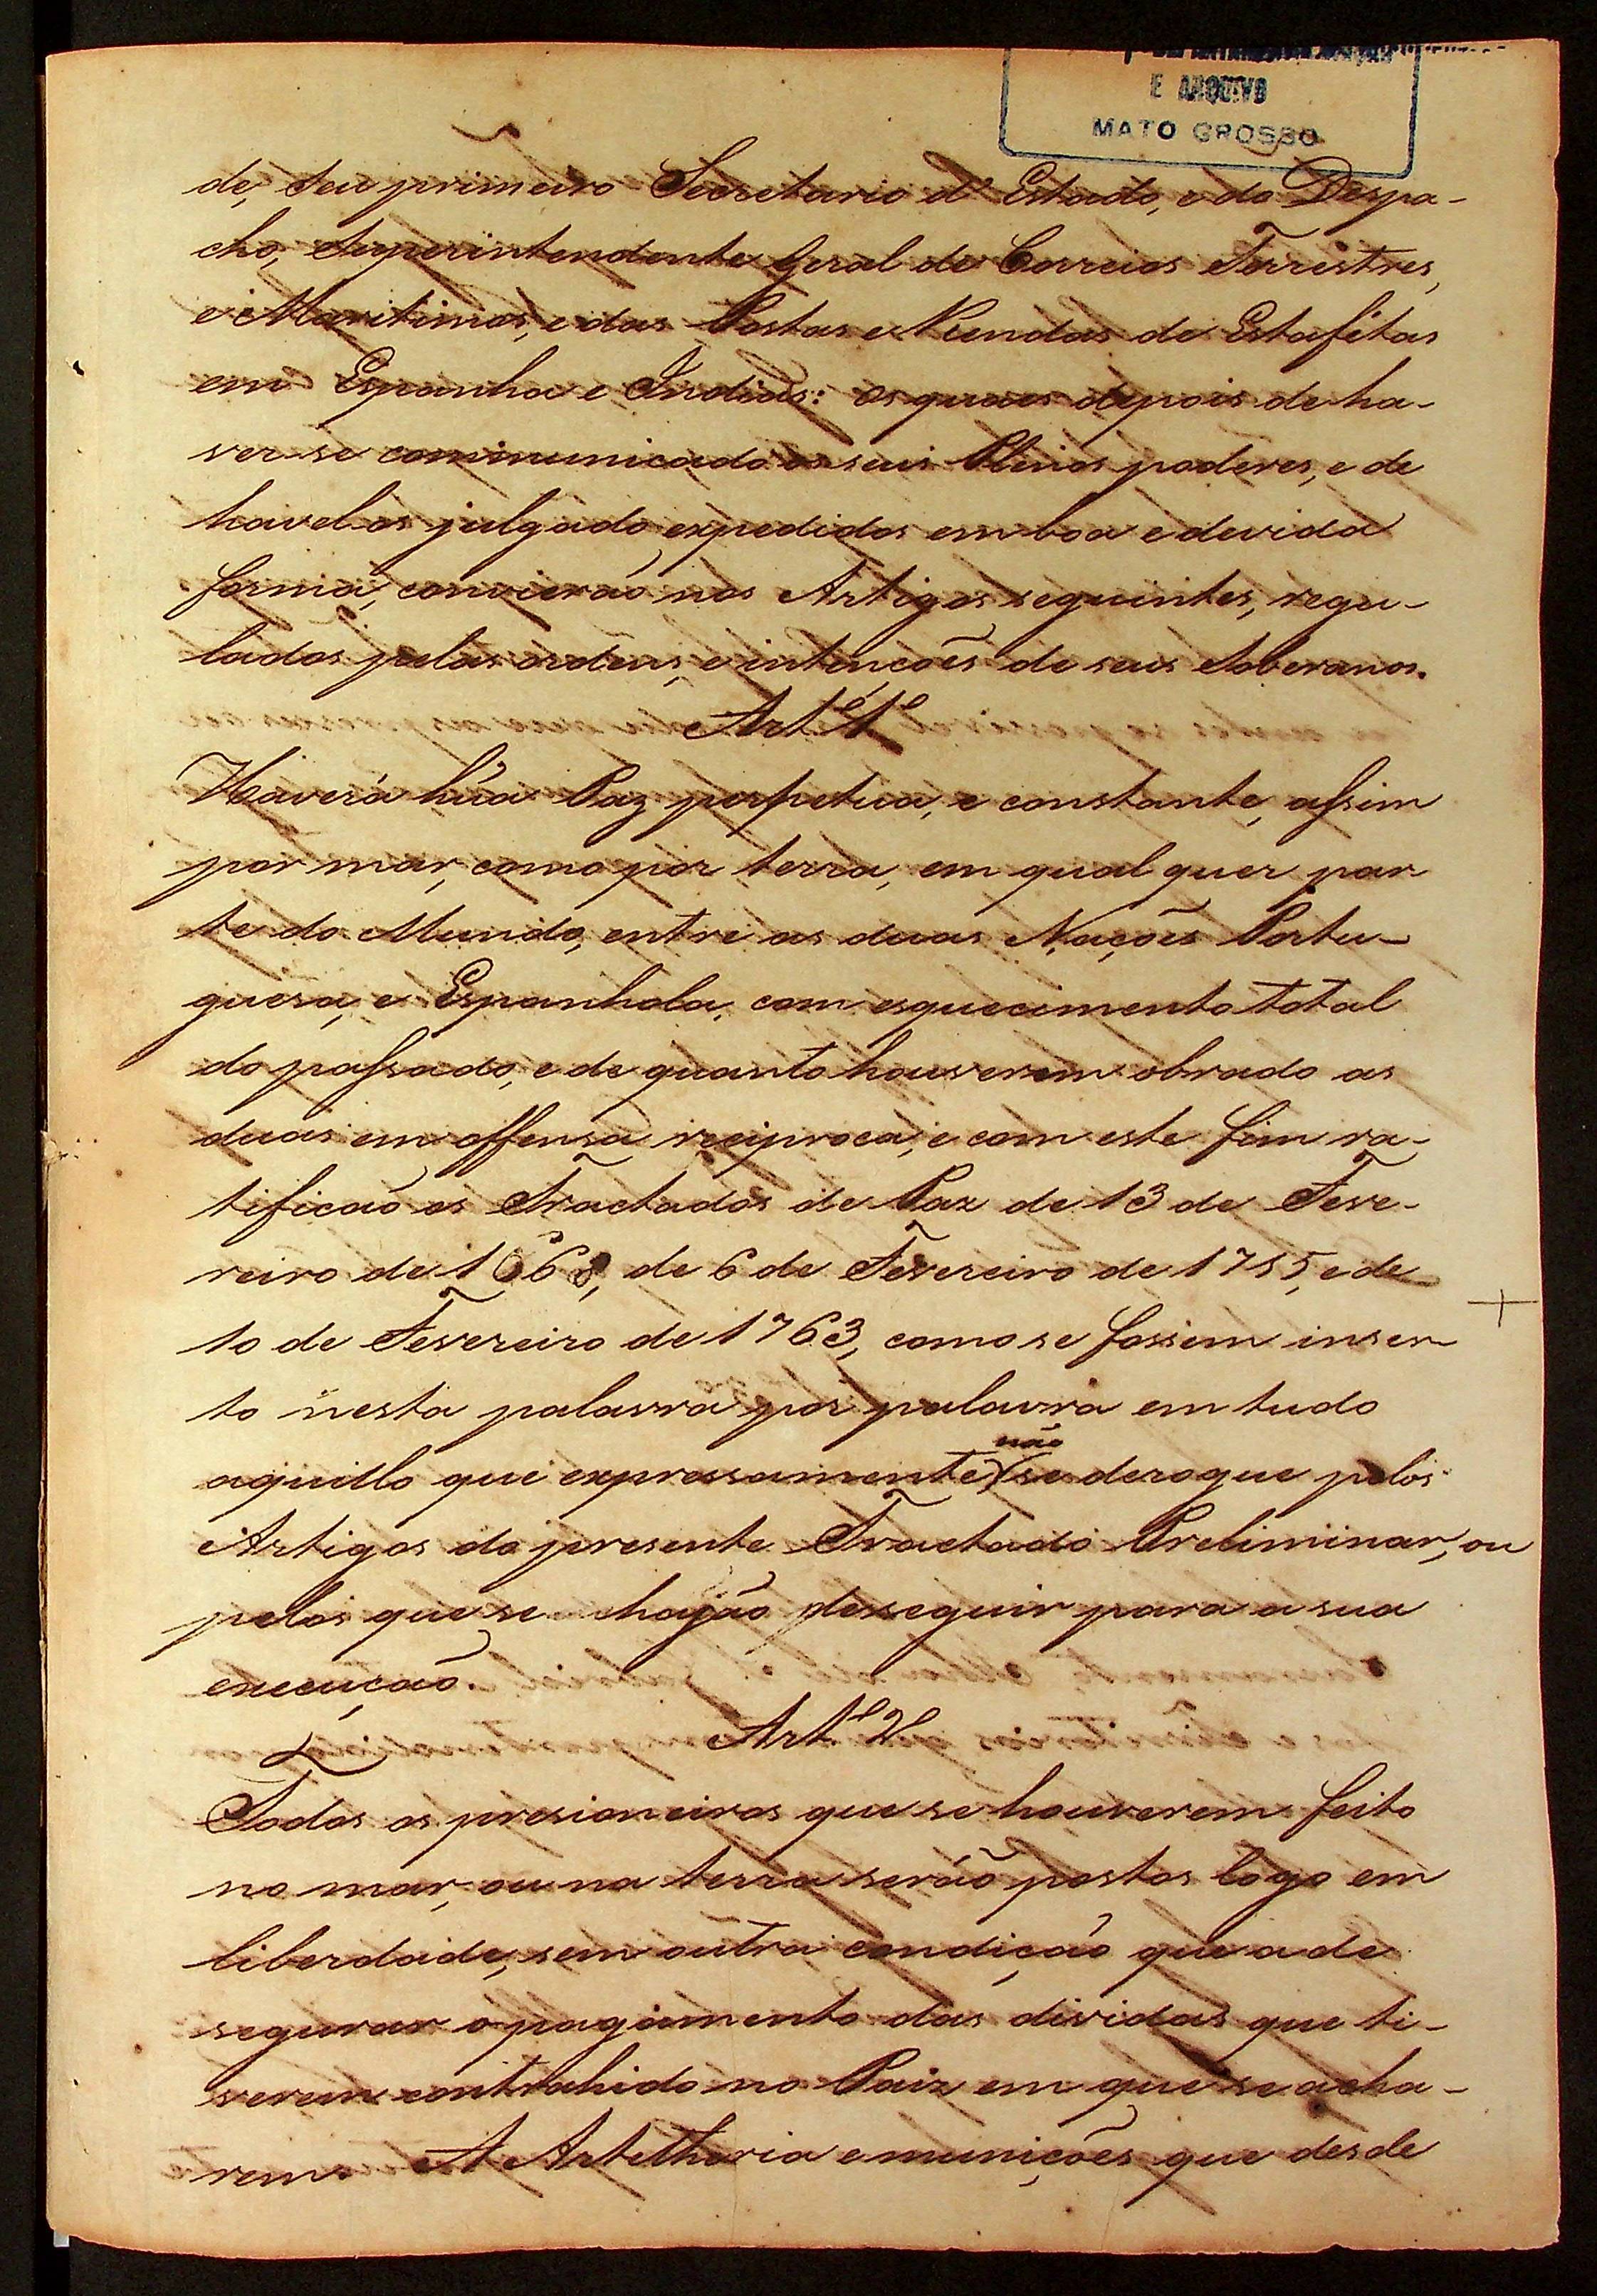 E ARQUIVO
MATO GROSSO
de, seu primeiro Secretario d'Estado, e do Despa-
cho, Superintendente Geral de Correios Terrestres,
e Maritimos, e das Postas e Rendas de Estafêtas
em Espanha e Indias: os quaes depois de ha-
ver-se communicado os seus Plenos poderes, e de
havel-os julgado expedidos em boa e devida
forma, convierão nos Artigos seguintes, regu-
lados pelas ordens, e intenções de seus Soberanos.
Art.º 1º
Haverá hũa Paz perpetua, e constante, assim
por mar, como por terra, em qual quer par
te do Mundo, entre as duas Nações Portu-
guesa, e Espanhola, com esquecimento total
do passado, e de quanto houverem obrado as
duas em offensa reciproca; e com este fim ra-
tificaõ os Tractados de Paz de 13 de Feve-
reiro de 1668, de 6 de Fevereiro de 1715, e de
10 de Fevereiro de 1763, como se fossem inser-
to nesta palavra por palavra em tudo
não
aquillo que expressamente se derogue pelos
Artigos do presente Tractado Preliminar, ou
pelos que se hajão desseguir para a sua
execução.
Art.º 2º
Todos os presioneiros que se houverem feito
no mar, ou na terra serão postos logo em
liberdade, sem outra condição que a de
segurar o pagamento das dividas que ti-
verem contrahido no Paiz em que se acha-
rem. A Artelharia e munições que desde